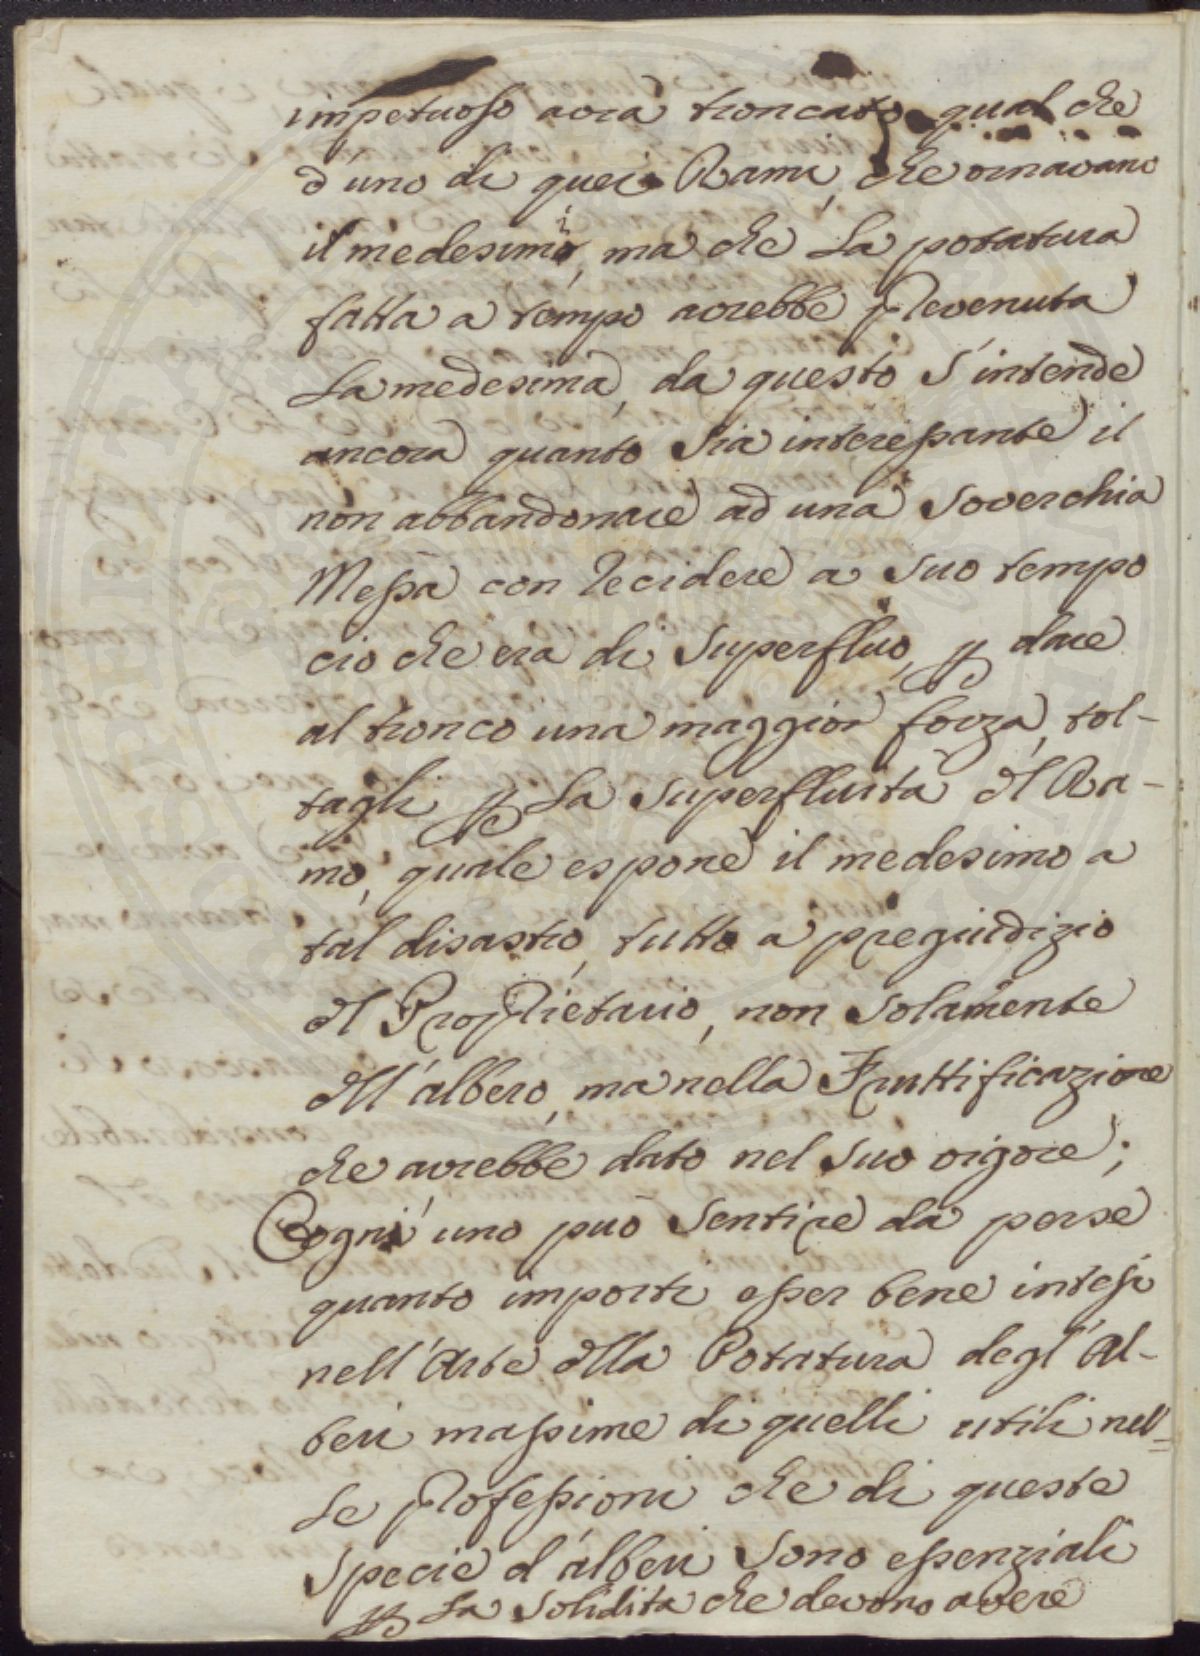 impetuoso avrà troncato qual che
d'uno di quei Rami, che ornavano
il medesimi, ma che La potatura
fatta a tempo avrebbe prevenuta
La medesima, da questo s'intende
ancora quanto sia interessante il
non abbandonare ad una soverchia
Messa con recidere a suo tempo
cio che era di superfluo, p dare
al tronco una maggior forza, tol-
tagli p La superfluità dl Ra-
mo, quale espone il medesimo a
tal disastro, tutto a pregiudizio
dl Proprietario, non solamente
dll'albero, ma nella Fruttificazione
che avrebbe dato nel suo vigore;
ogni uno può sentire da perse
quanto importi esser bene intesi
nell'Arte dlla Potatura degl'Al-
beri massime di quelli utili nell=
Le professioni che di queste
specie d'alberi sono essenziali
p La solidita che devono avere